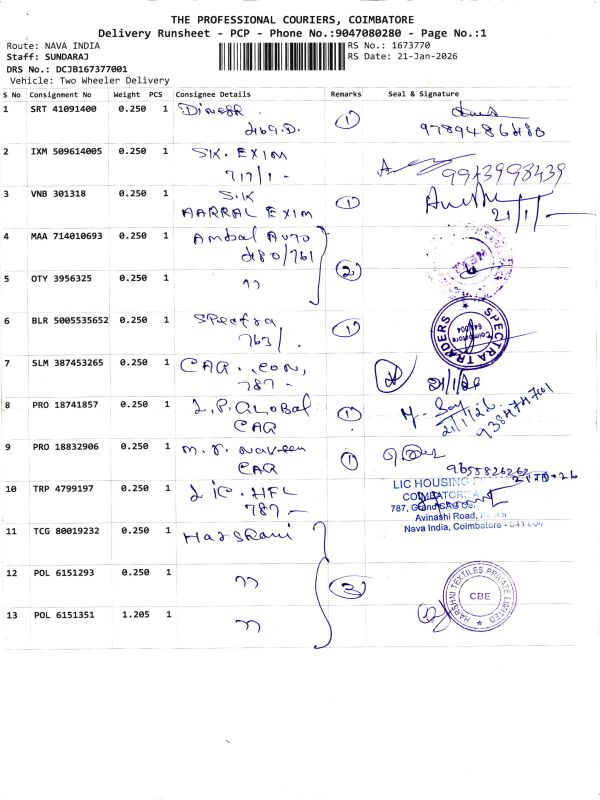 THE PROFESSIONAL COURIERS, COIMBATORE
Delivery Runsheet - PCP - Phone No.:9047080280 - Page No.:1
Route: NAVA INDIA
Staff: SUNDARAJ
DRS No.: DCJB167377001
Vehicle: Two Wheeler Delivery
RS No.: 1673770
RS Date: 21-Jan-2026
S No Consignment No Weight PCS Consignee Details Remarks Seal & Signature
1 SRT 41091400 0.250 1 Dinesh 1
9789486480
2 IXM 509614005 0.250 1 S.K. EXIM
717/1 - 9943998439
3 VNB 301318 0.250 1 S.K 1
AARRAL EXIM 21/1/-
4 MAA 714010693 0.250 1 Ambal Auto
480/761 2
5 OTY 3956325 0.250 1 "
6 BLR 5005535652 0.250 1 Spectra 1
763/.
SPECTRA TRADERS
Coimbatore
641 004
7 SLM 387453265 0.250 1 CAG. CON,
787 - 21/1/26
8 PRO 18741857 0.250 1 L.P. GLOBAL 1
CAG 21/1/26
9 PRO 18832906 0.250 1 M.P. Naveen 1
CAG
10 TRP 4799197 0.250 1 LIC. HFL
787. -
LIC HOUSING
COIMBATORE
787,
Avinashi Road,
Nava India, Coimbatore - 641 004
11 TCG 80019232 0.250 1 Harshani
12 POL 6151293 0.250 1 " 3
HARSHNI TEXTILES PRIVATE LIMITED
CBE
13 POL 6151351 1.205 1 "